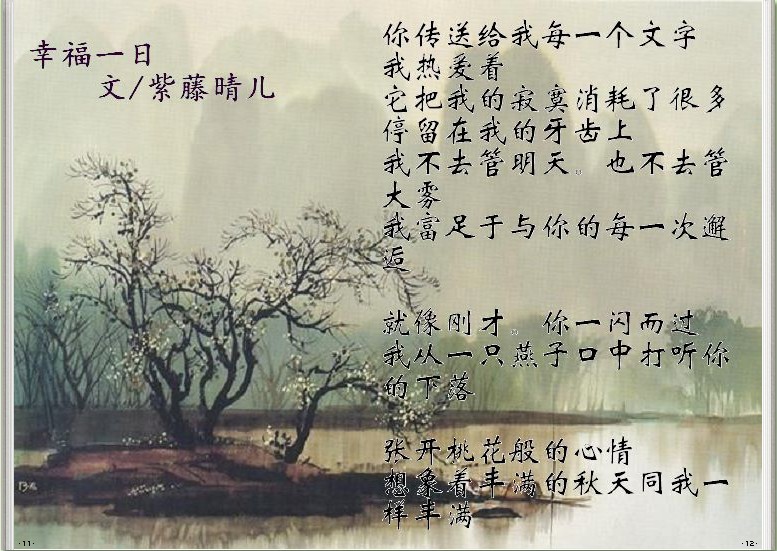 幸福一日
文/紫藤晴儿
你传送给我每一个文字
我热爱着
它把我的寂寞消耗了很多
停留在我的牙齿上
我不去管明天。也不去管
大雾
我富足于与你的每一次邂
逅
就像刚才。你一闪而过
我从一只燕子口中打听你
的下落
张开桃花般的心情
想象着丰满的秋天同我一
样丰满
·11·
·12·